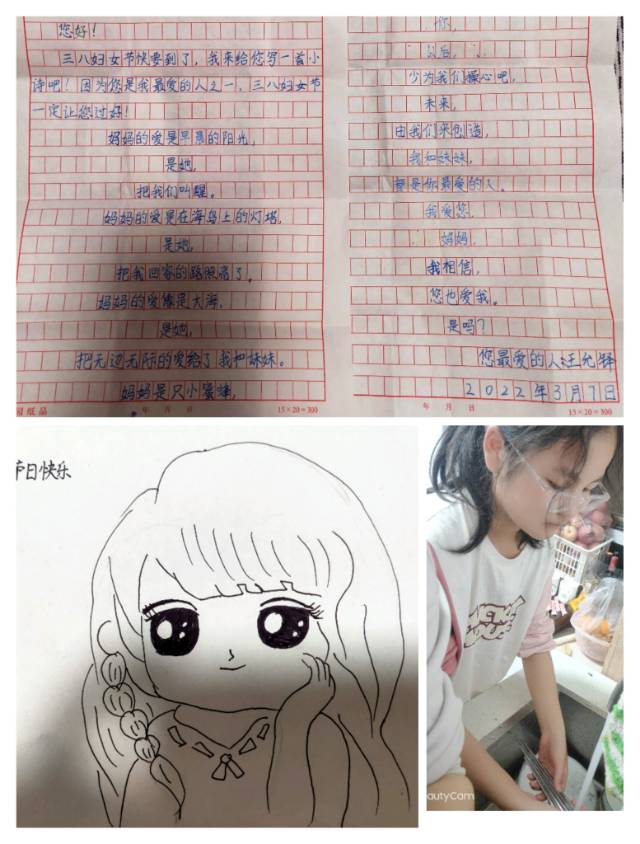 您好!
三八妇女节快要到了,我来给您写一首小
诗吧!因为您是我最爱的人之一,三八妇女节
一定让您过好!
妈妈的爱是早晨的阳光,
是她,
把我们叫醒。
妈妈的爱更在海岛上的灯塔,
是她,
把我回家的路照亮了。
妈妈的爱像是大海,
是她,
把无边无际的爱给了我和妹妹。
妈妈是只小蜜蜂,
年 月 日
15×20=300
你,
以后,
少为我们操心吧,
未来,
由我们来创造,
我和妹妹,
都是你最爱的人。
我爱您,
妈妈,
我相信,
您也爱我。
是吗?
您最爱的人:汪允
2022年3月7日
年 月 日
15×20=300
节日快乐
autyCam